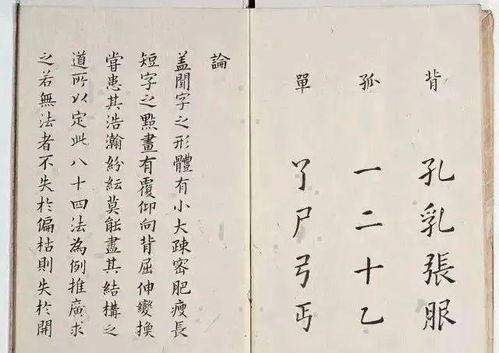 背
孔乳張服
孤
一二十乙
單
了尸弓丐
論
蓋聞字之形體有小大疎密肥瘦長
短字之點畫有覆仰向背屈伸變換
嘗患其浩瀚紛紜莫能盡其結構之
道所以定此八十四法為例推廣求
之若無法者不失於偏枯則失於開